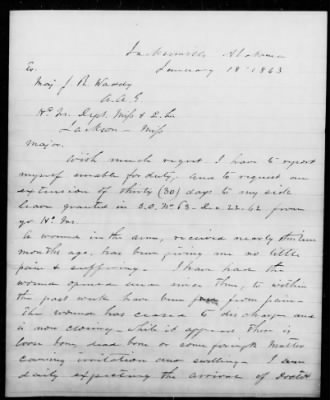 Jacksonville Alabama
January 18th 1863
To
Maj J. R. Waddy
A.A.G.
Hd Qr. Dept. Miss & E. La
Jackson Miss
Major.
With much regret I have to report
myself unable for duty, and to request an
extension of thirty (30) days to my sick
leave granted in S.O. No 63 - Dec 22. 62 from
yr Hd Qr.
A wound in the arm, received nearly thirteen
months ago, has been giving me no little
pain & suffering - I have had the
wound opened since then, to within
the past week have been free from pain -
the wound has ceased to discharge and
is now closing - still it appears there is
loose bone, dead bone or some foreign matter
causing irritation and swelling - I am
daily expecting the arrival of Doctor